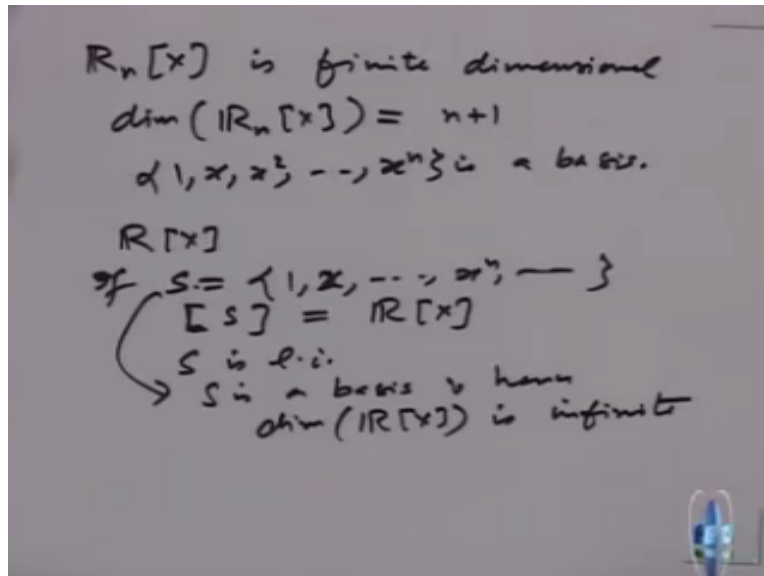 ℝₙ[x] is finite dimensional
dim(ℝₙ[x]) = n+1
{1, x, x², --, xⁿ} is a basis.
ℝ[x]
If S:= {1, x, ---, xⁿ, — }
[S] = ℝ[x]
S is l.i.
S is a basis & hence
dim(ℝ[x]) is infinite